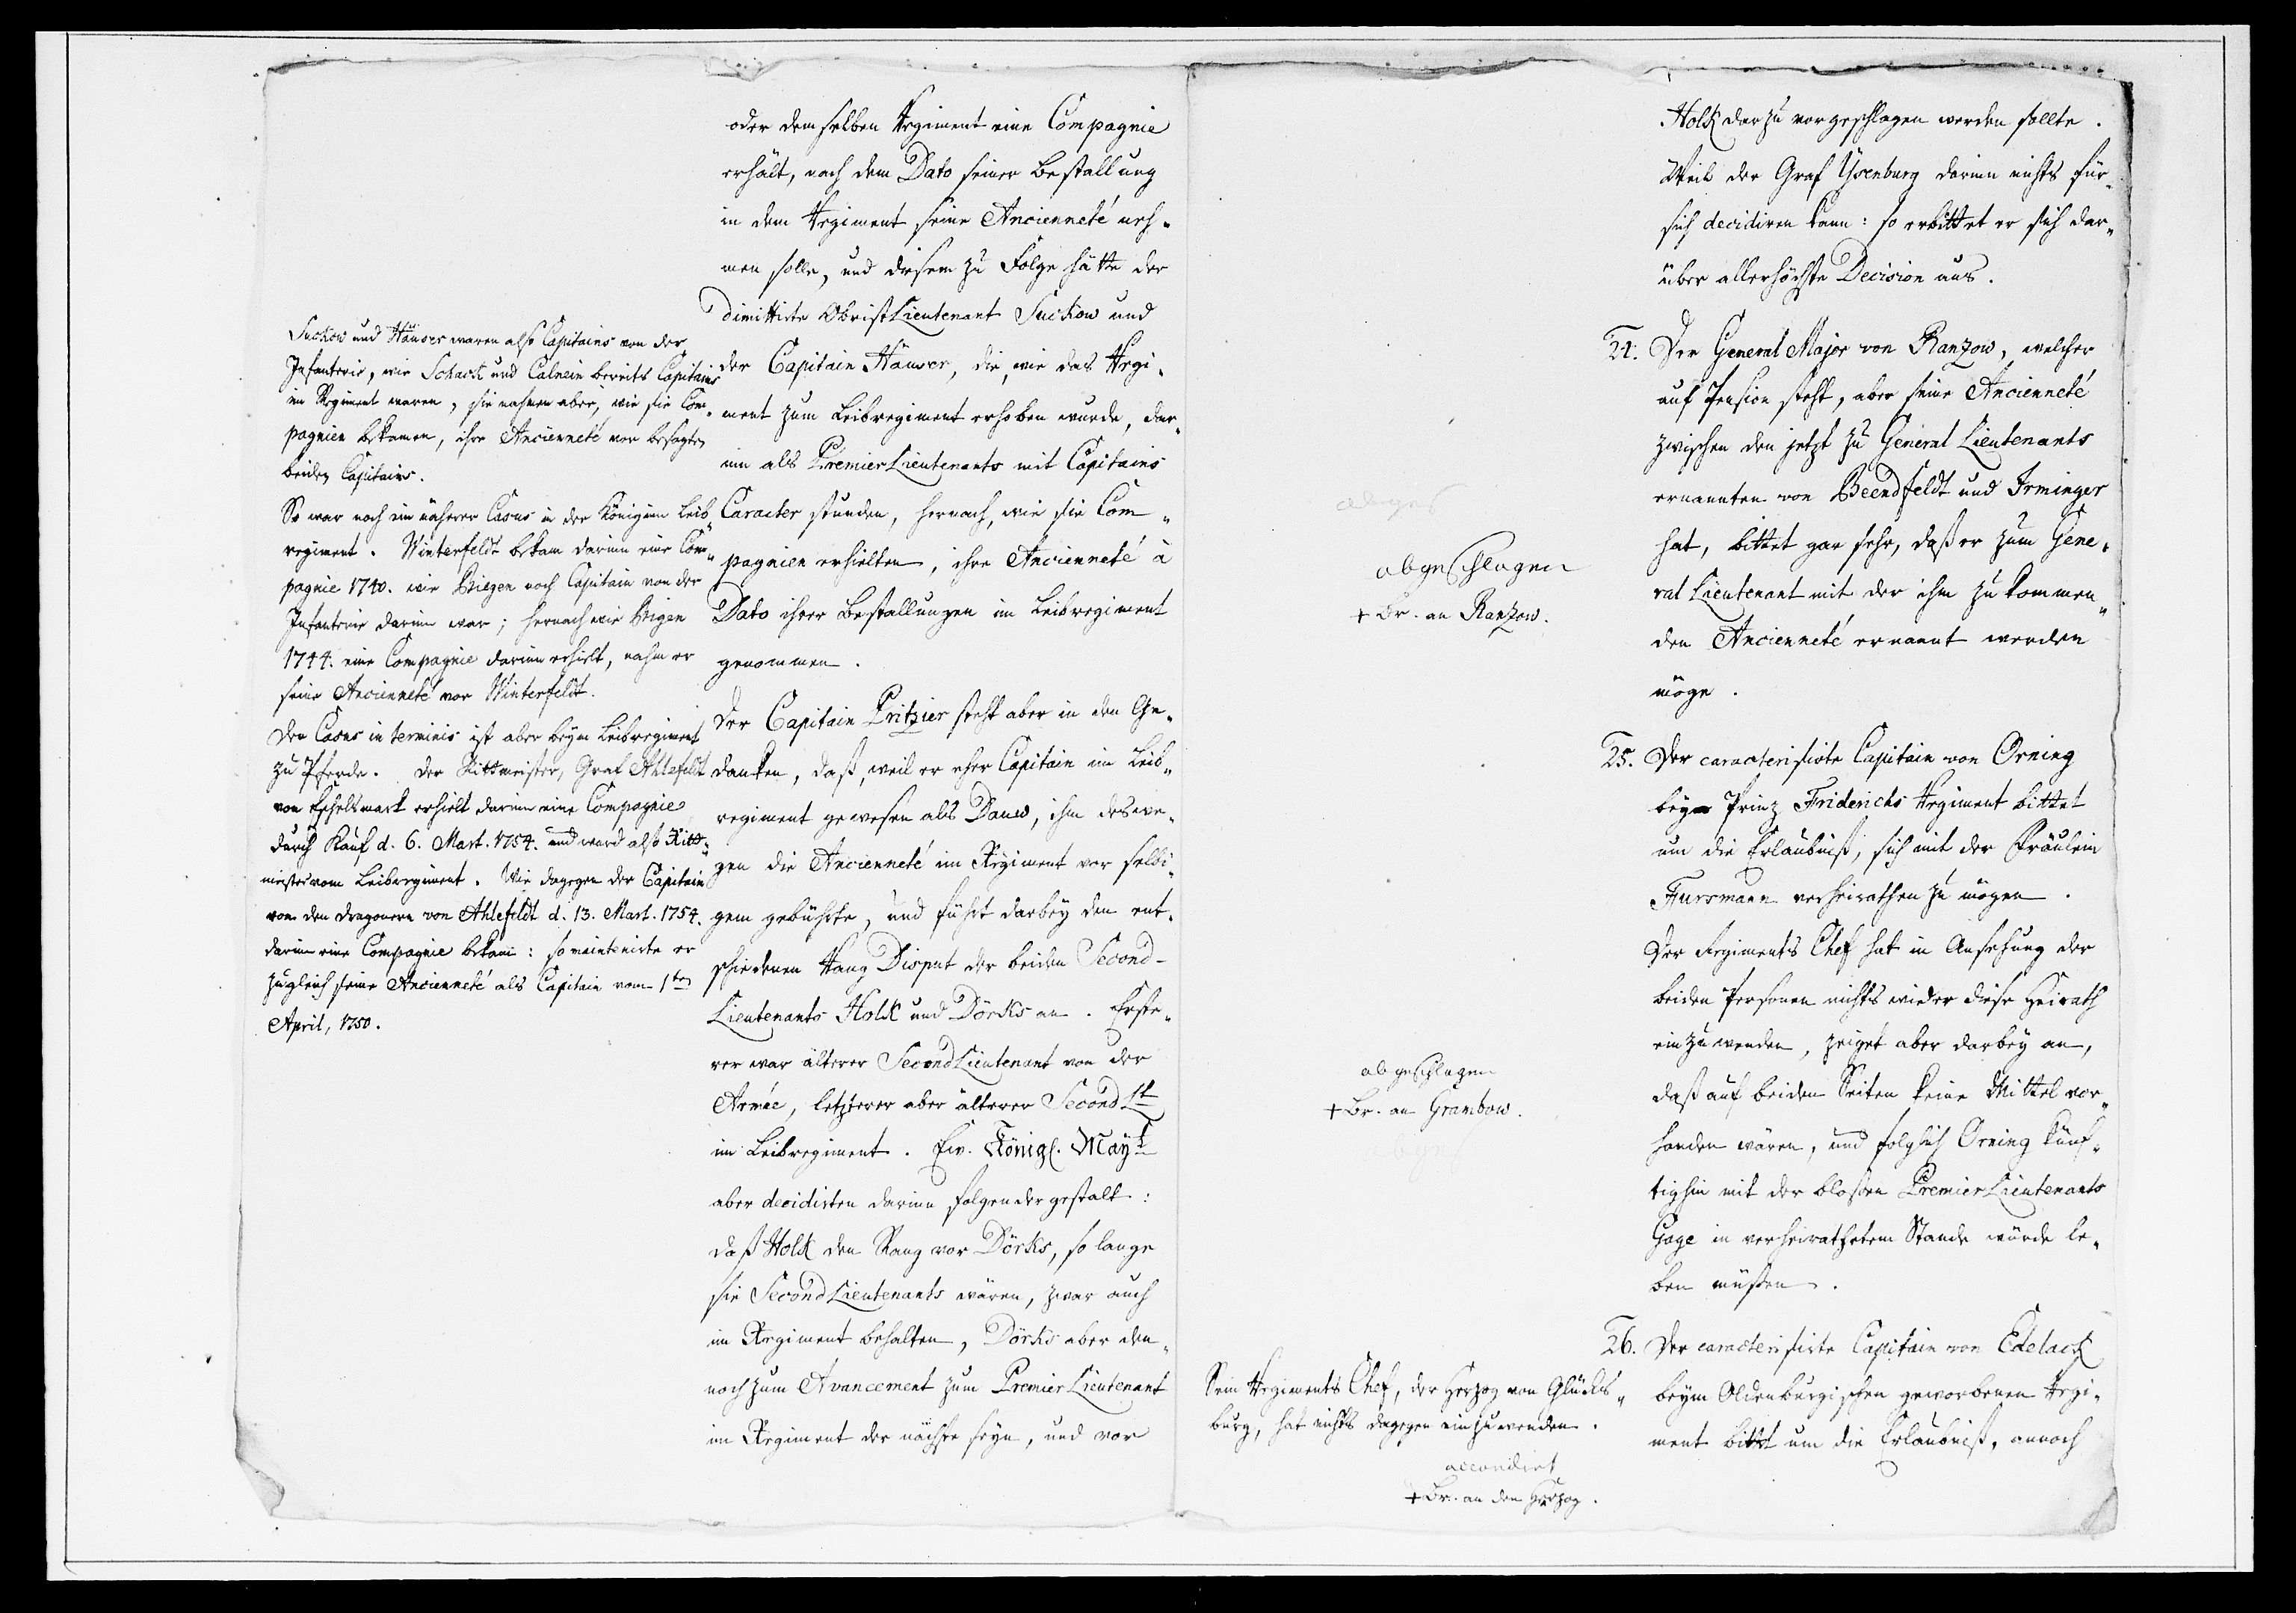 oder demselben Regiment eine Compagnie
erhält, nach dem Dato seiner Bestallung
in dem Regiment seine Ancienneté neh-
men solle, und diesem zu Folge hätte der
dimittirte ObristLieutenant Suckow und
der Capitain Häuser, die, wie das Regi-
ment zum Leibregiment erhoben wurde, dar-
inn als PremierLieutenants mit Capitains
Caracter stunden, hernach, wie sie Com-
pagnien erhielten, ihre Ancienneté à
Dato ihrer Bestallungen im Leibregiment
genommen.
Der Capitain Pritzier steht aber in den Ge-
danken, daß, weil er eher Capitain im Leib-
regiment gewesen als Dauw, ihm deswe-
gen die Ancienneté im Regiment vor selbi-
gem gebührte, und führt darbey den ent-
schiedenen Rang Disput der beiden Second-
Lieutenants Holk und Dörks an. Erste-
rer war älterer SecondLieutenant von der
Armée, letzterer aber älterer Second Lt
im Leibregiment. Ew. Königl. Mayt
aber decidirten darinn folgender gestalt:
daß Holk den Rang vor Dörks, so lange
sie SecondLieutenants wären, zwar auch
im Regiment behalten, Dörks aber den-
noch zum Avancement zum PremierLieutenant
im Regiment der nächste seyn, und vor
Suckow und Häuser waren also Capitains von der
Infanterie, wie Schack und Calnein bereits Capitains
im Regiment waren, sie nahmen aber, wie sie Com-
pagnien bekamen, ihre Ancienneté vor besagten
beiden Capitains.
So war noch ein näherer Casus in der Königinn Leib-
regiment. Winterfeldt bekam darinn eine Com-
pagnie 1740. wie Biegen noch Capitain von der
Infanterie darinn war; hernach wie Biegen
1744. eine Compagnie darinn erhielt, nahm er
seine Ancienneté vor Winterfeldt.
Der Casus in terminis ist aber beym Leibregiment
zu Pferde. Der Rittmeister, Graf Ahlefeldt
von Eschelsmark erhielt darinn eine Compagnie
durch Kauf d. 6. Mart. 1754. und ward also Ritt-
meister vom Leibregiment. Wie dagegen der Capitain
von den Dragonern von Ahlefeldt d. 13. Mart. 1754.
darinn eine Compagnie bekam: so maintenirte er
zugleich seine Ancienneté als Capitain vom 1ten
April, 1750.
Holk darzu vorgeschlagen werden sollte.
Weil der Graf Ysenburg darinn nichts für
sich decidiren kann: so erbittet er sich dar-
über allerhöchste Decision aus.
24. Der General Major von Ranzow, welcher
auf Pension steht, aber seine Ancienneté
zwischen den jetzt zu General Lieutenants
ernannten von Beendfeldt und Irminger
hat, bittet gar sehr, daß er zum Gene-
ral Lieutenant mit der ihm zu kommen-
den Ancienneté ernannt werden
möge.
abges
abgeschlagen
+ Br. an Ranzow.
25. Der caracterisirte Capitain von Orning
bey Prinz Friderichs Regiment bittet
um die Erlaubniß, sich mit der Fräulein
Fursmann verheirathen zu mögen.
Der Regiments Chef hat in Ansehung der
beiden Personen nichts wider diese Heirath
einzuwenden, zeiget aber darbey an,
daß auf beiden Seiten keine Mittel vor-
handen wären, und folglich Orning künf-
tighin mit der bloßen PremierLieutenants
Gage in verheirathetem Stande würde le-
ben müßen.
abgeschlagen
+ Br. an Grambow.
26. Der caracterisirte Capitain von Edelack
beym Oldenburgischen geworbenen Regi-
ment bittet um die Erlaubniß, annoch
Sein Regiments Chef, der Herzog von Glücks-
burg, hat nichts dagegen einzuwenden.
accordirt
+ Br. an den Herzog.